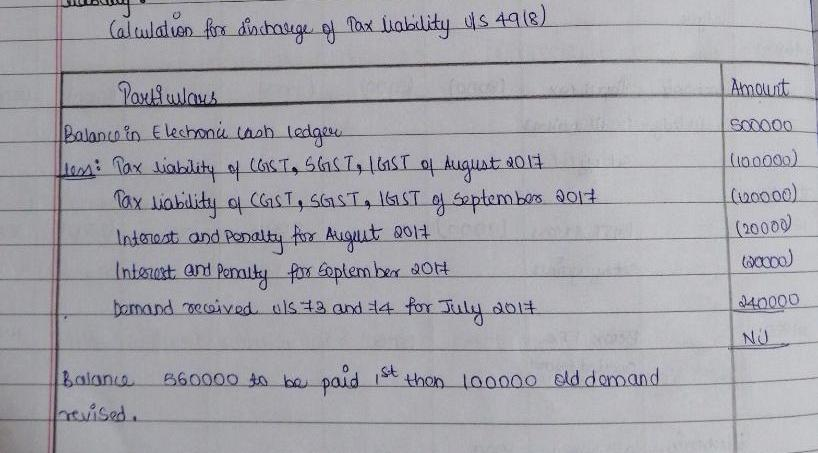 Calculation for discharge of Tax liability u/s 49(8)
Particulars Amount
Balance in Electronic cash ledger 500000
Less: Tax liability of CGST, SGST, IGST of August 2017 (100000)
Tax liability of CGST, SGST, IGST of September 2017 (120000)
Interest and Penalty for August 2017 (20000)
Interest and Penalty for September 2017 (20000)
Demand received u/s 73 and 74 for July 2017 240000
Nil
Balance 560000 to be paid 1st then 100000 old demand
revised.